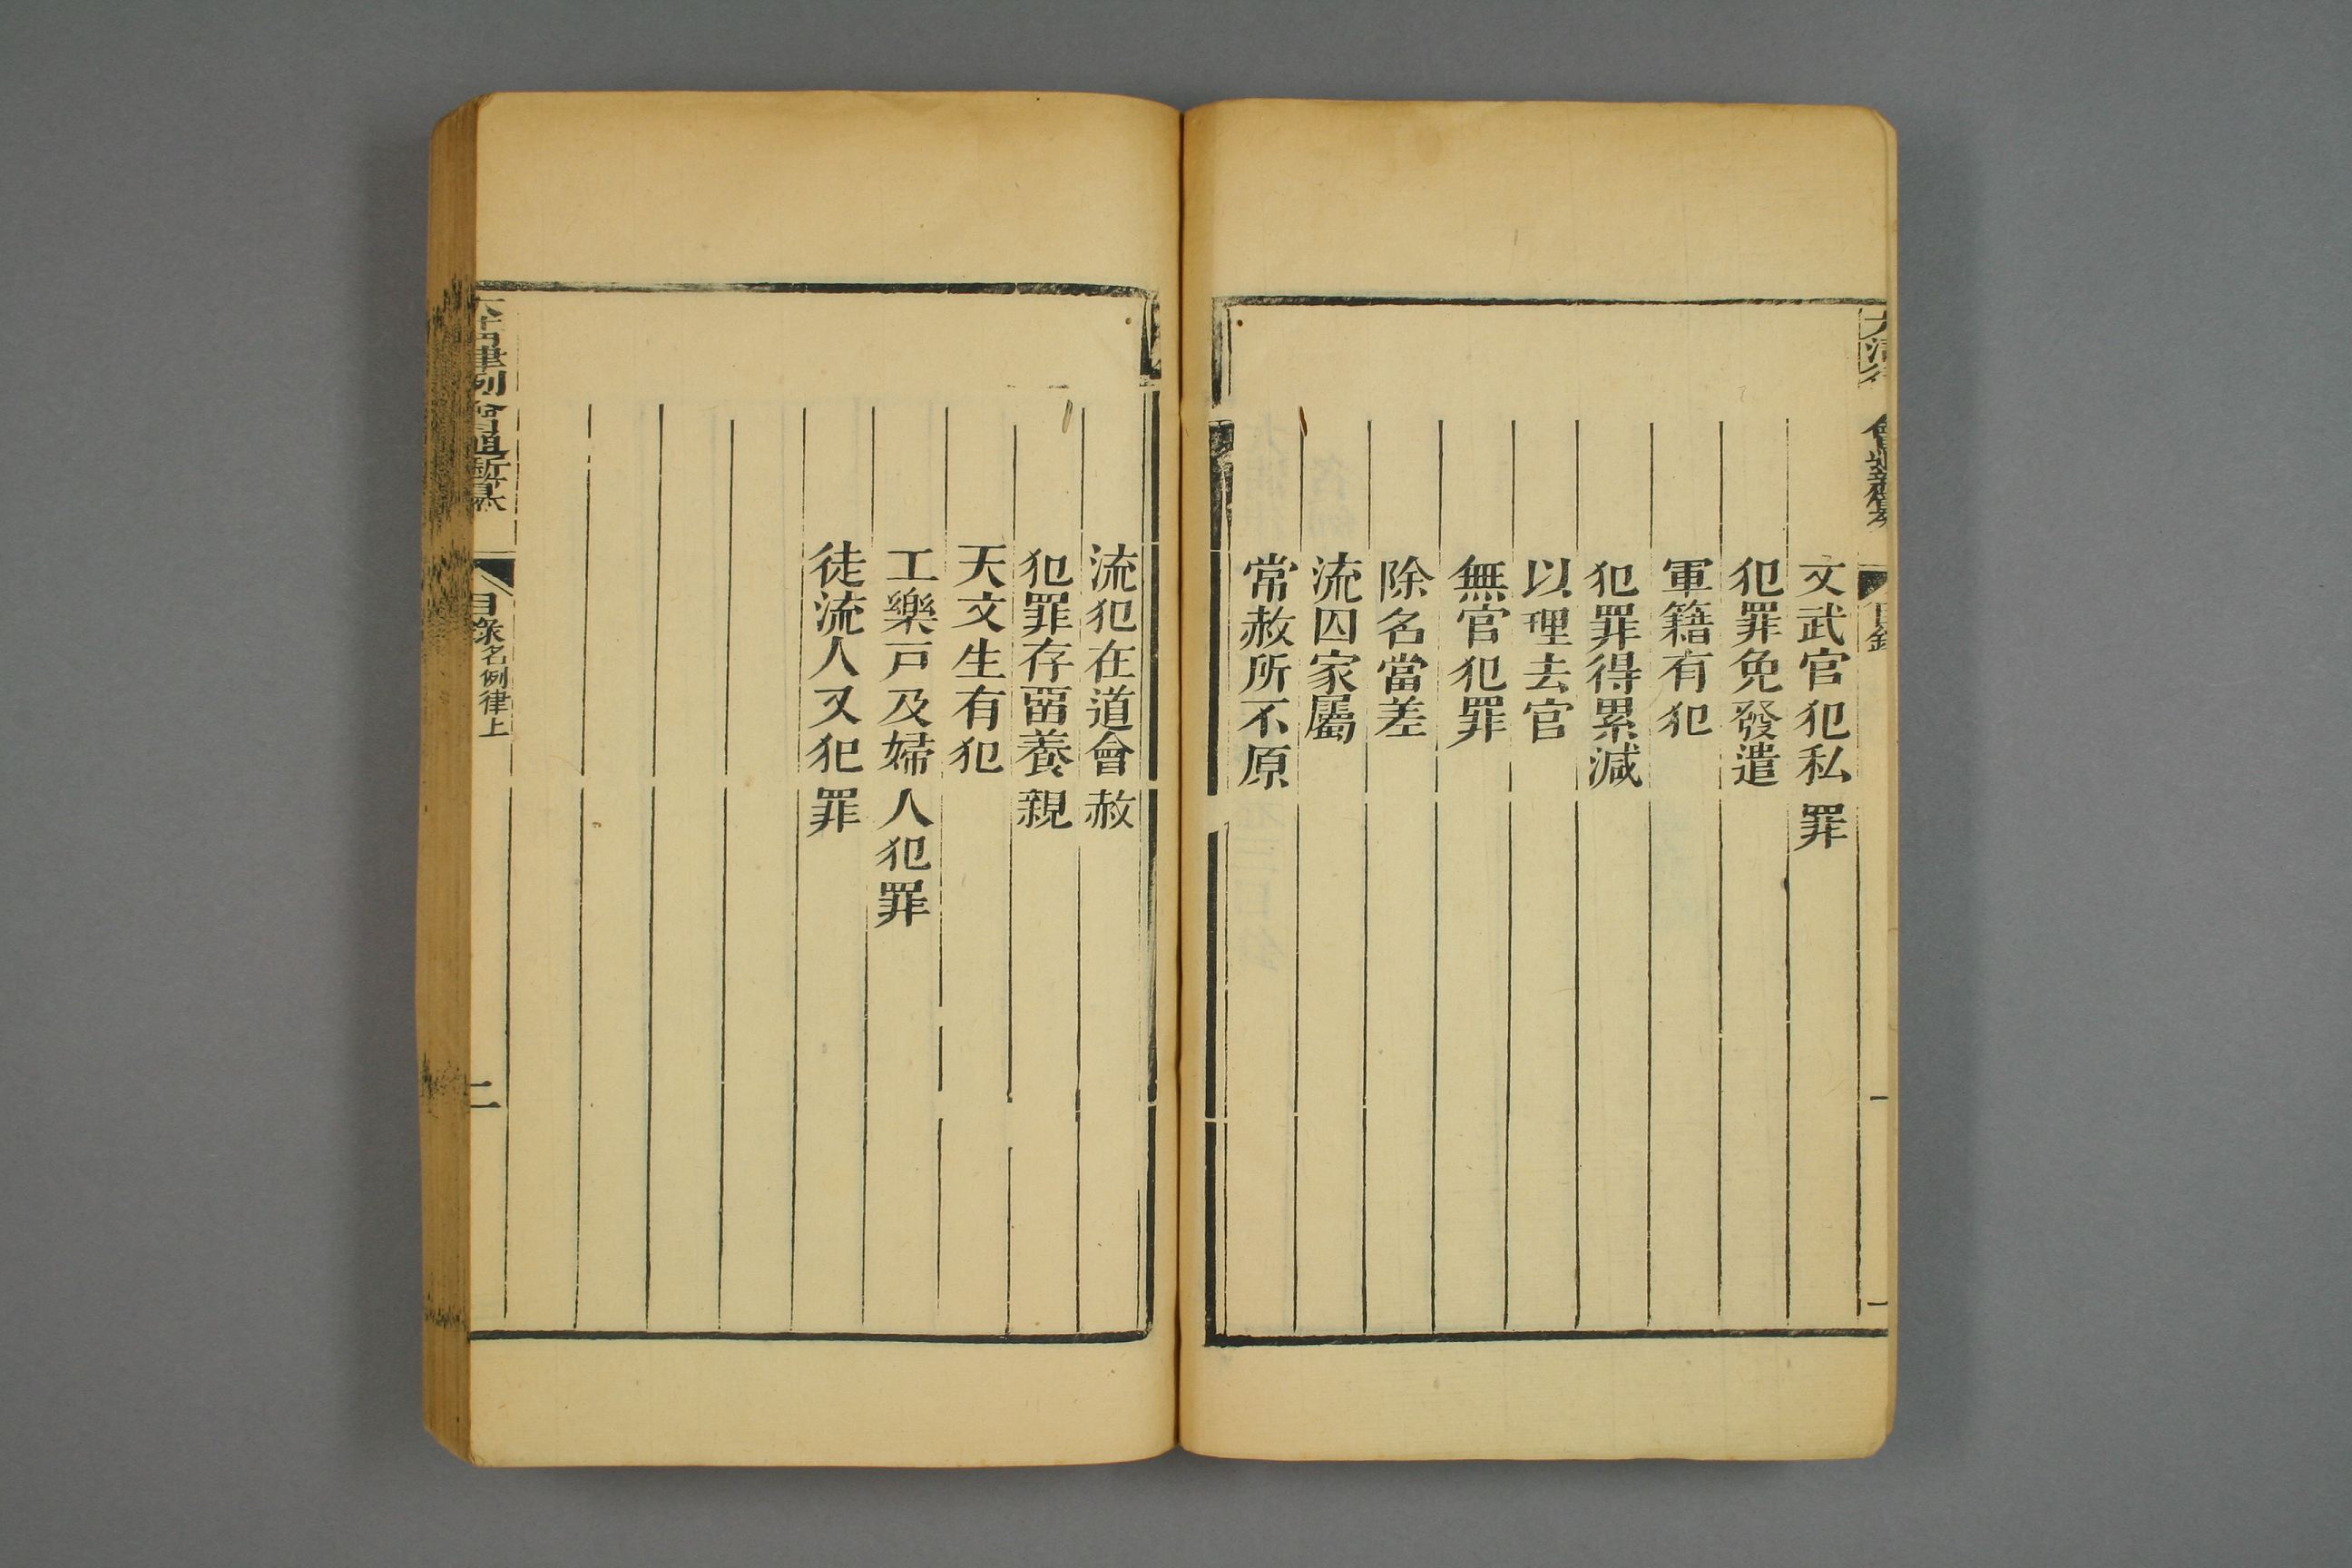 文武官犯私罪
犯罪免發遣
軍籍有犯
犯罪得累減
以理去官
無官犯罪
除名當差
流囚家屬
常赦所不原
流犯在道會赦
犯罪存留養親
天文生有犯
工樂戸及婦人犯罪
徒流人又犯罪
大清律例會通新纂
目錄名例律上
二